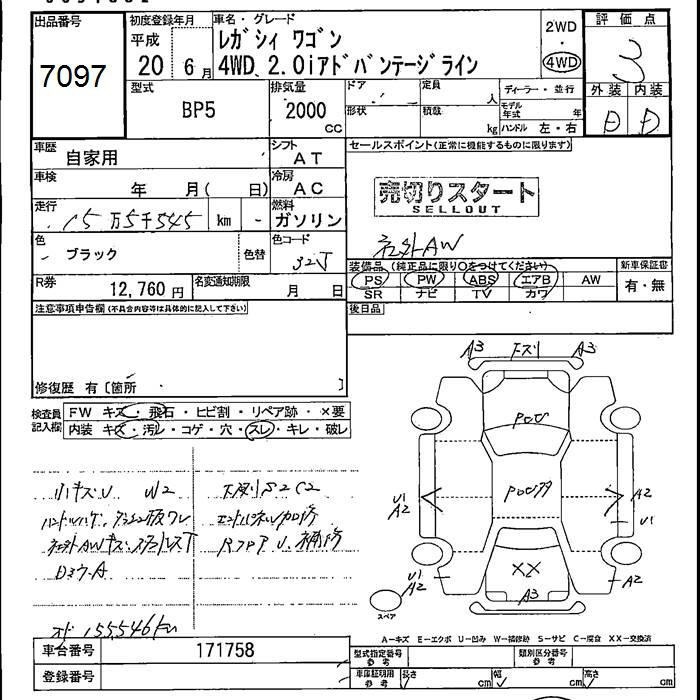 出品番号
7097
初度登録年月
平成
20 6月
車名・グレード
レガシィ ワゴン
4WD、2.0iアドバンテージライン
2WD
・
4WD
評価点
3
外装 内装
D D
型式
BP5
排気量
2000
CC
ドア
形状
定員
人
積載
kg
ディーラー・並行
モデル年式 年
ハンドル 左・右
車歴
自家用
シフト
AT
車検
年 月( 日)
冷房
AC
走行
15万5千545 km
燃料
ガソリン
色
ブラック
色替
色コード
32J
R券
12,760円
名変通知期限
月 日
セールスポイント(正常に機能するものに限ります)
売切りスタート
SELLOUT
社外AW
装備品(純正品に限り○をつけてください)
PS PW ABS エアB AW
SR ナビ TV カワ
新車保証書
有・無
後日品
注意事項申告欄(不具合内容等は具体的に記入して下さい)
修復歴 有〔箇所 〕
検査員記入欄
FW キズ・飛石・ヒビ割・リペア跡・×要
内装 キズ・汚レ・コゲ・穴・スレ・キレ・破レ
小キズU W2
ハンドルハゲ、
社外AWキズ、
下廻りS2C2
補修
オド155,546km
A3 下スリ A3
U1
A2
A2
U1
XX
A3
U1
A2
A2
スペア
A-キズ E-エクボ U-凹み W-補修跡 S-サビ C-腐食 XX-交換済
車台番号
171758
登録番号
型式指定番号
参考
類別区分番号
参考
車庫証明用
参考
長さ cm
幅 cm
高さ cm